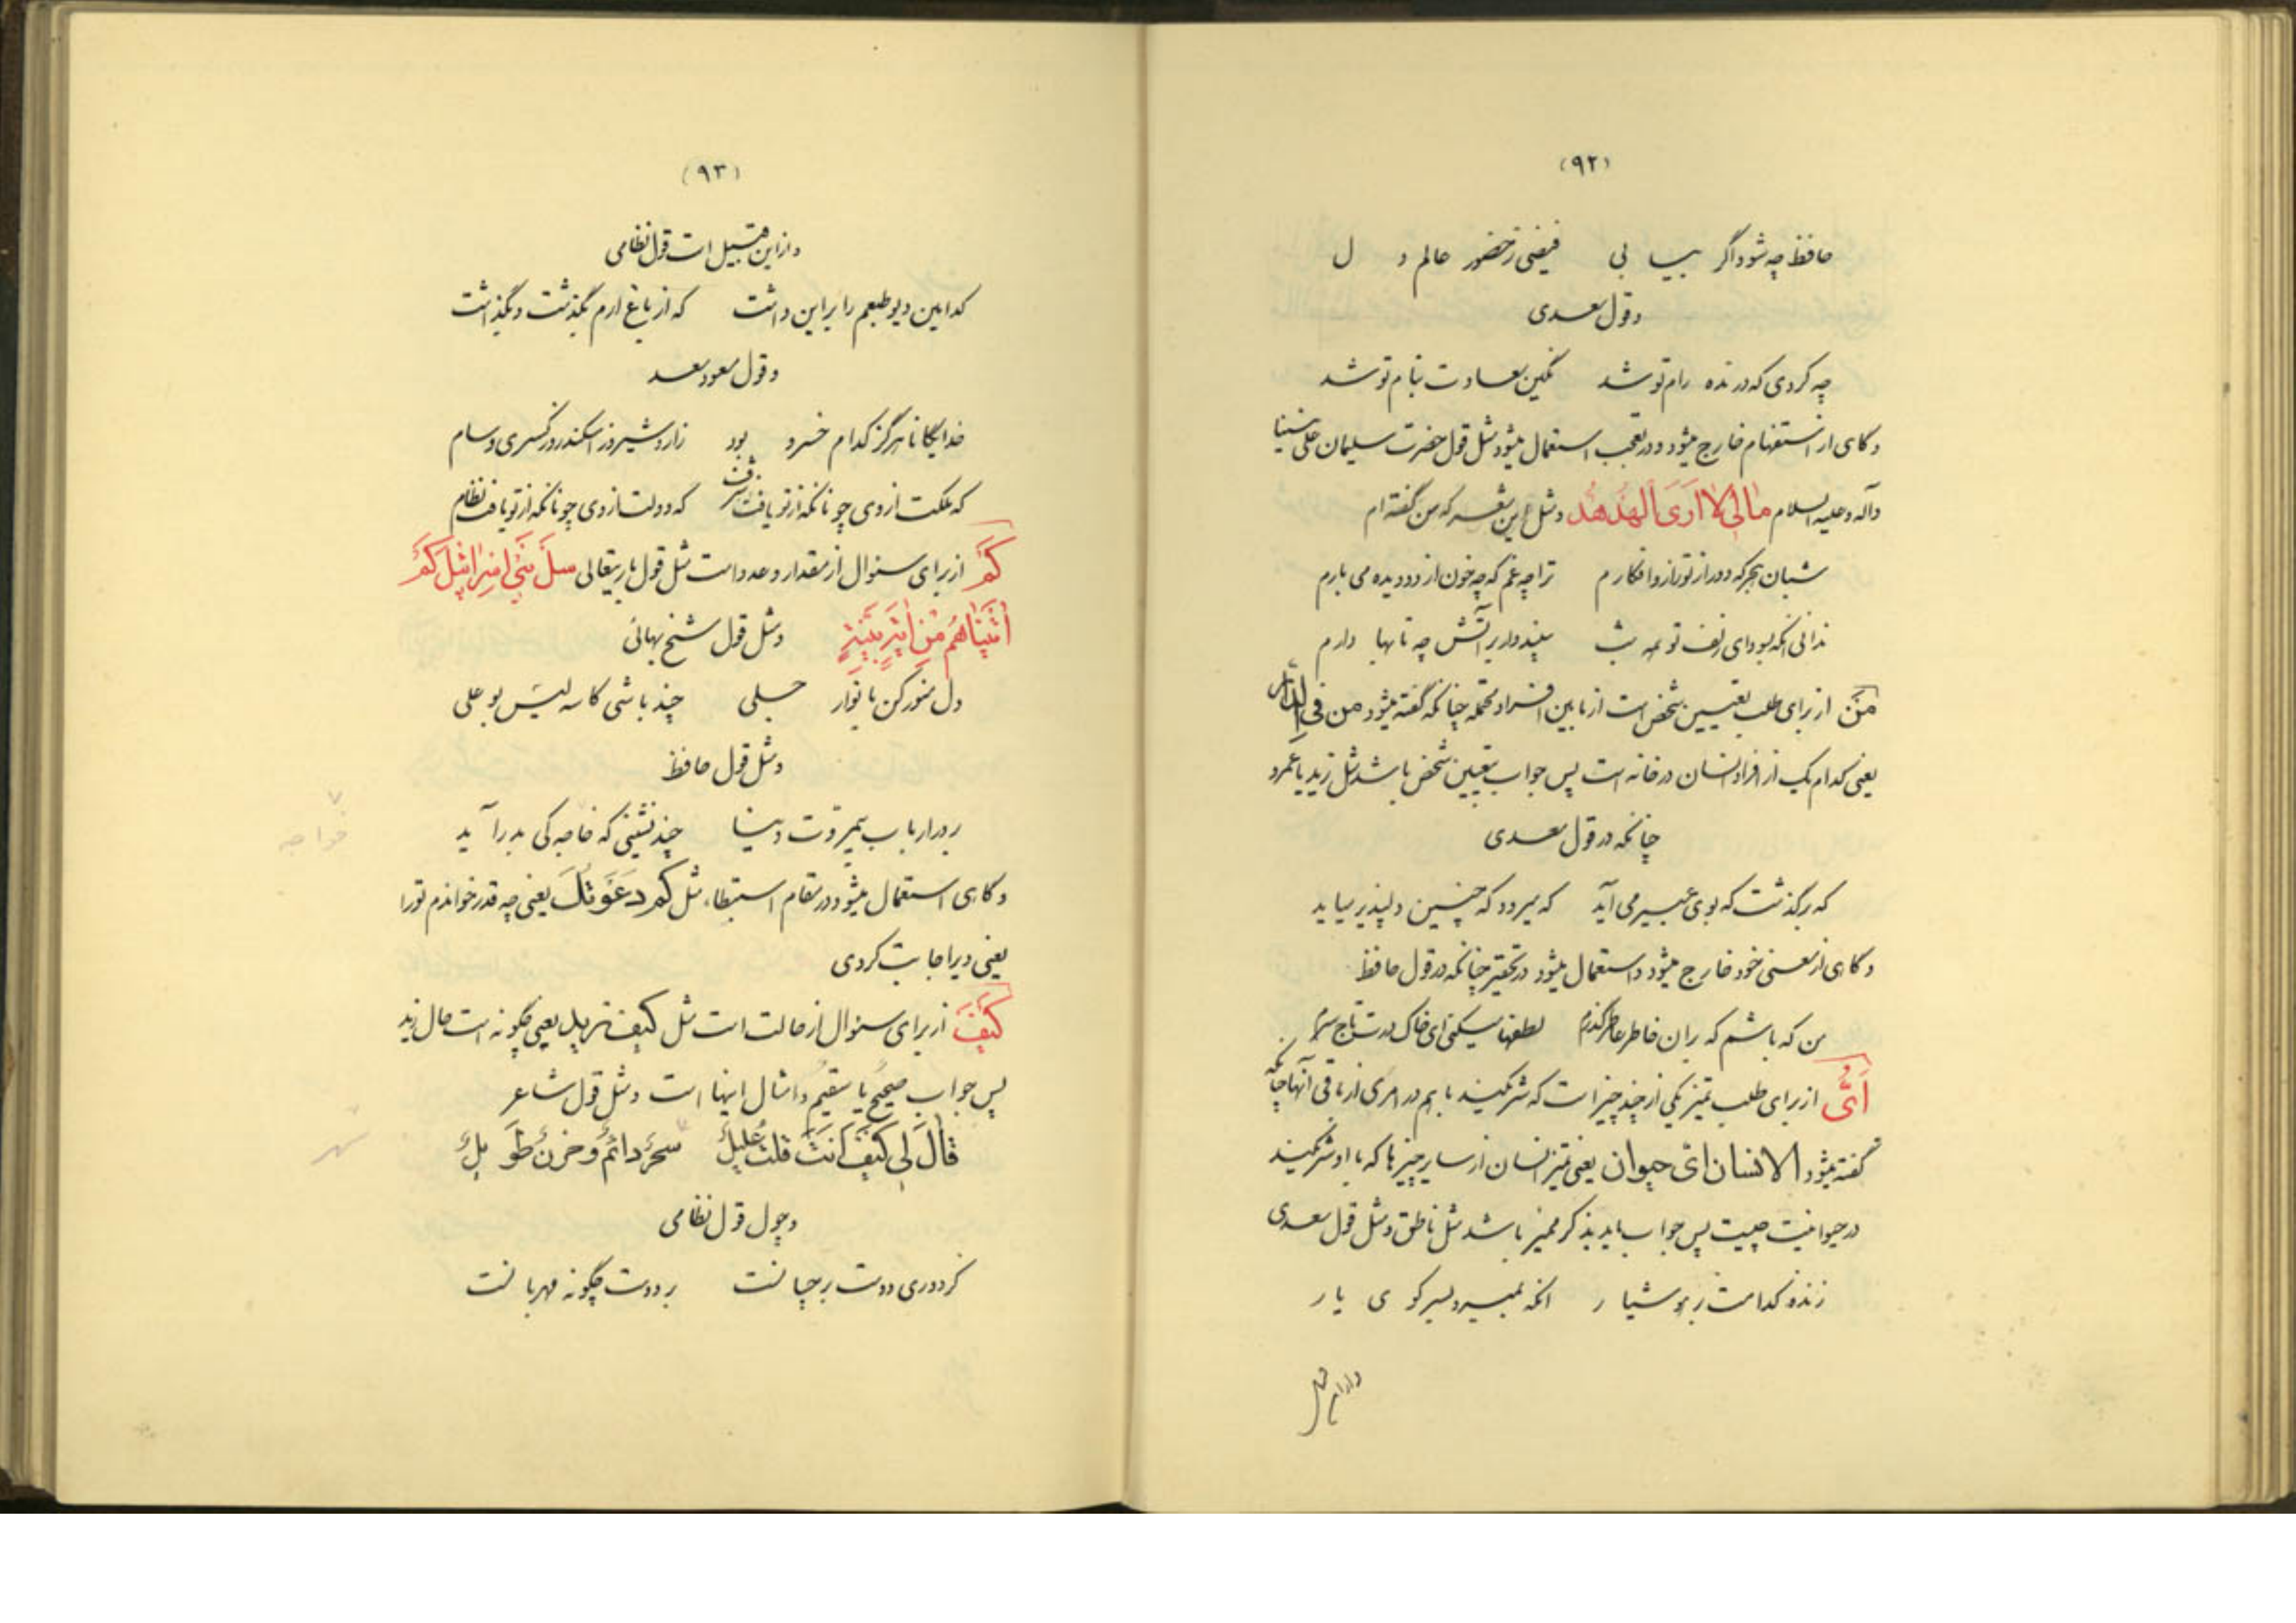 (۹۲)
حافظ چه شود اگر بیابی فیضی ز حضور عالم دل
و قول سعدی
چه کردی که درنده رام تو شد نگین سعادت بنام تو شد
و کاهی از استفهام خارج میشود و در تعجب استعمال میشود مثل قول حضرت سلیمان علی نبینا
و آله و علیه السلام مالی لا اری الهدهد و مثل این شعر که من گفته ام
شبان هجر که دور از تو زار و افکارم ترا چه غم که چه خون از دو دیده می بارم
ندانی آنکه بسودای زلف تو همه شب سپندوار بر آتش چه تابها دارم
مَن از برای طلب تعیین شخص است از ما بین افراد محتمله چنانکه گفته میشود من فی الدار
یعنی کدام یک از افراد انسان در خانه است پس جواب بتعیین شخص باشد مثل زید یا عمرو
چنانکه در قول سعدی
که برگذشت که بوی عبیر می آید که میرود که چنین دلپذیر میاید
و کاهی از معنی خود خارج میشود و استعمال میشود در تحقیر چنانکه در قول حافظ
من که باشم که بران خاطر عاطر گذرم لطفها میکنی ای خاک درت تاج سرم
اَیُّ از برای طلب تمیز یکی از چند چیز است که شرکتند با هم در امری از باقی آنها چنانکه
گفته میشود الانسان ای حیوان یعنی تمیز انسان از سایر چیزها که با او شرکتند
در حیوانیت چیست پس جواب باید بذکر ممیز باشد مثل ناطق و مثل قول سعدی
زنده کدامست بر هوشیار آنکه بمیرد بسر کوی یار
(۹۳)
و از این قبیل است قول نظامی
کدامین دیو طبعم را بر این داشت که از باغ ارم بگذشت و بگذاشت
و قول مسعود سعد
خدایگانا هرگز کدام خسرو بود ز اردشیر و ز اسکندر و ز کسری و سام
که مملکت از وی چونانکه از تو یافت شرف که دولت از وی چونانکه از تو یافت نظام
کَم از برای سئوال از مقدار و عدد است مثل قول باریتعالی سل بنی اسرائیل کم
اتیناهم من ایة بینة و مثل قول شیخ بهائی
دل منور کن بانوار جلی چند باشی کاسه لیس بوعلی
و مثل قول حافظ
بر در ارباب بیمروت دنیا چند نشینی که خاجه کی بدر آید
خواجه
و کاهی استعمال میشود در مقام استبطاء مثل کم دعوتک یعنی چه قدر خواندم تو را
یعنی دیر اجابت کردی
کیف از برای سئوال از حالت است مثل کیف زید یعنی چگونه است حال زید
پس جواب صحیح یا سقیم و امثال اینها است و مثل قول شاعر
قال لی کیف انت قلت علیل سحر دائم و حزن طویل
سهر
و چون قول نظامی
کر دوری دوست بر چسانست بر دوست چگونه مهربانست